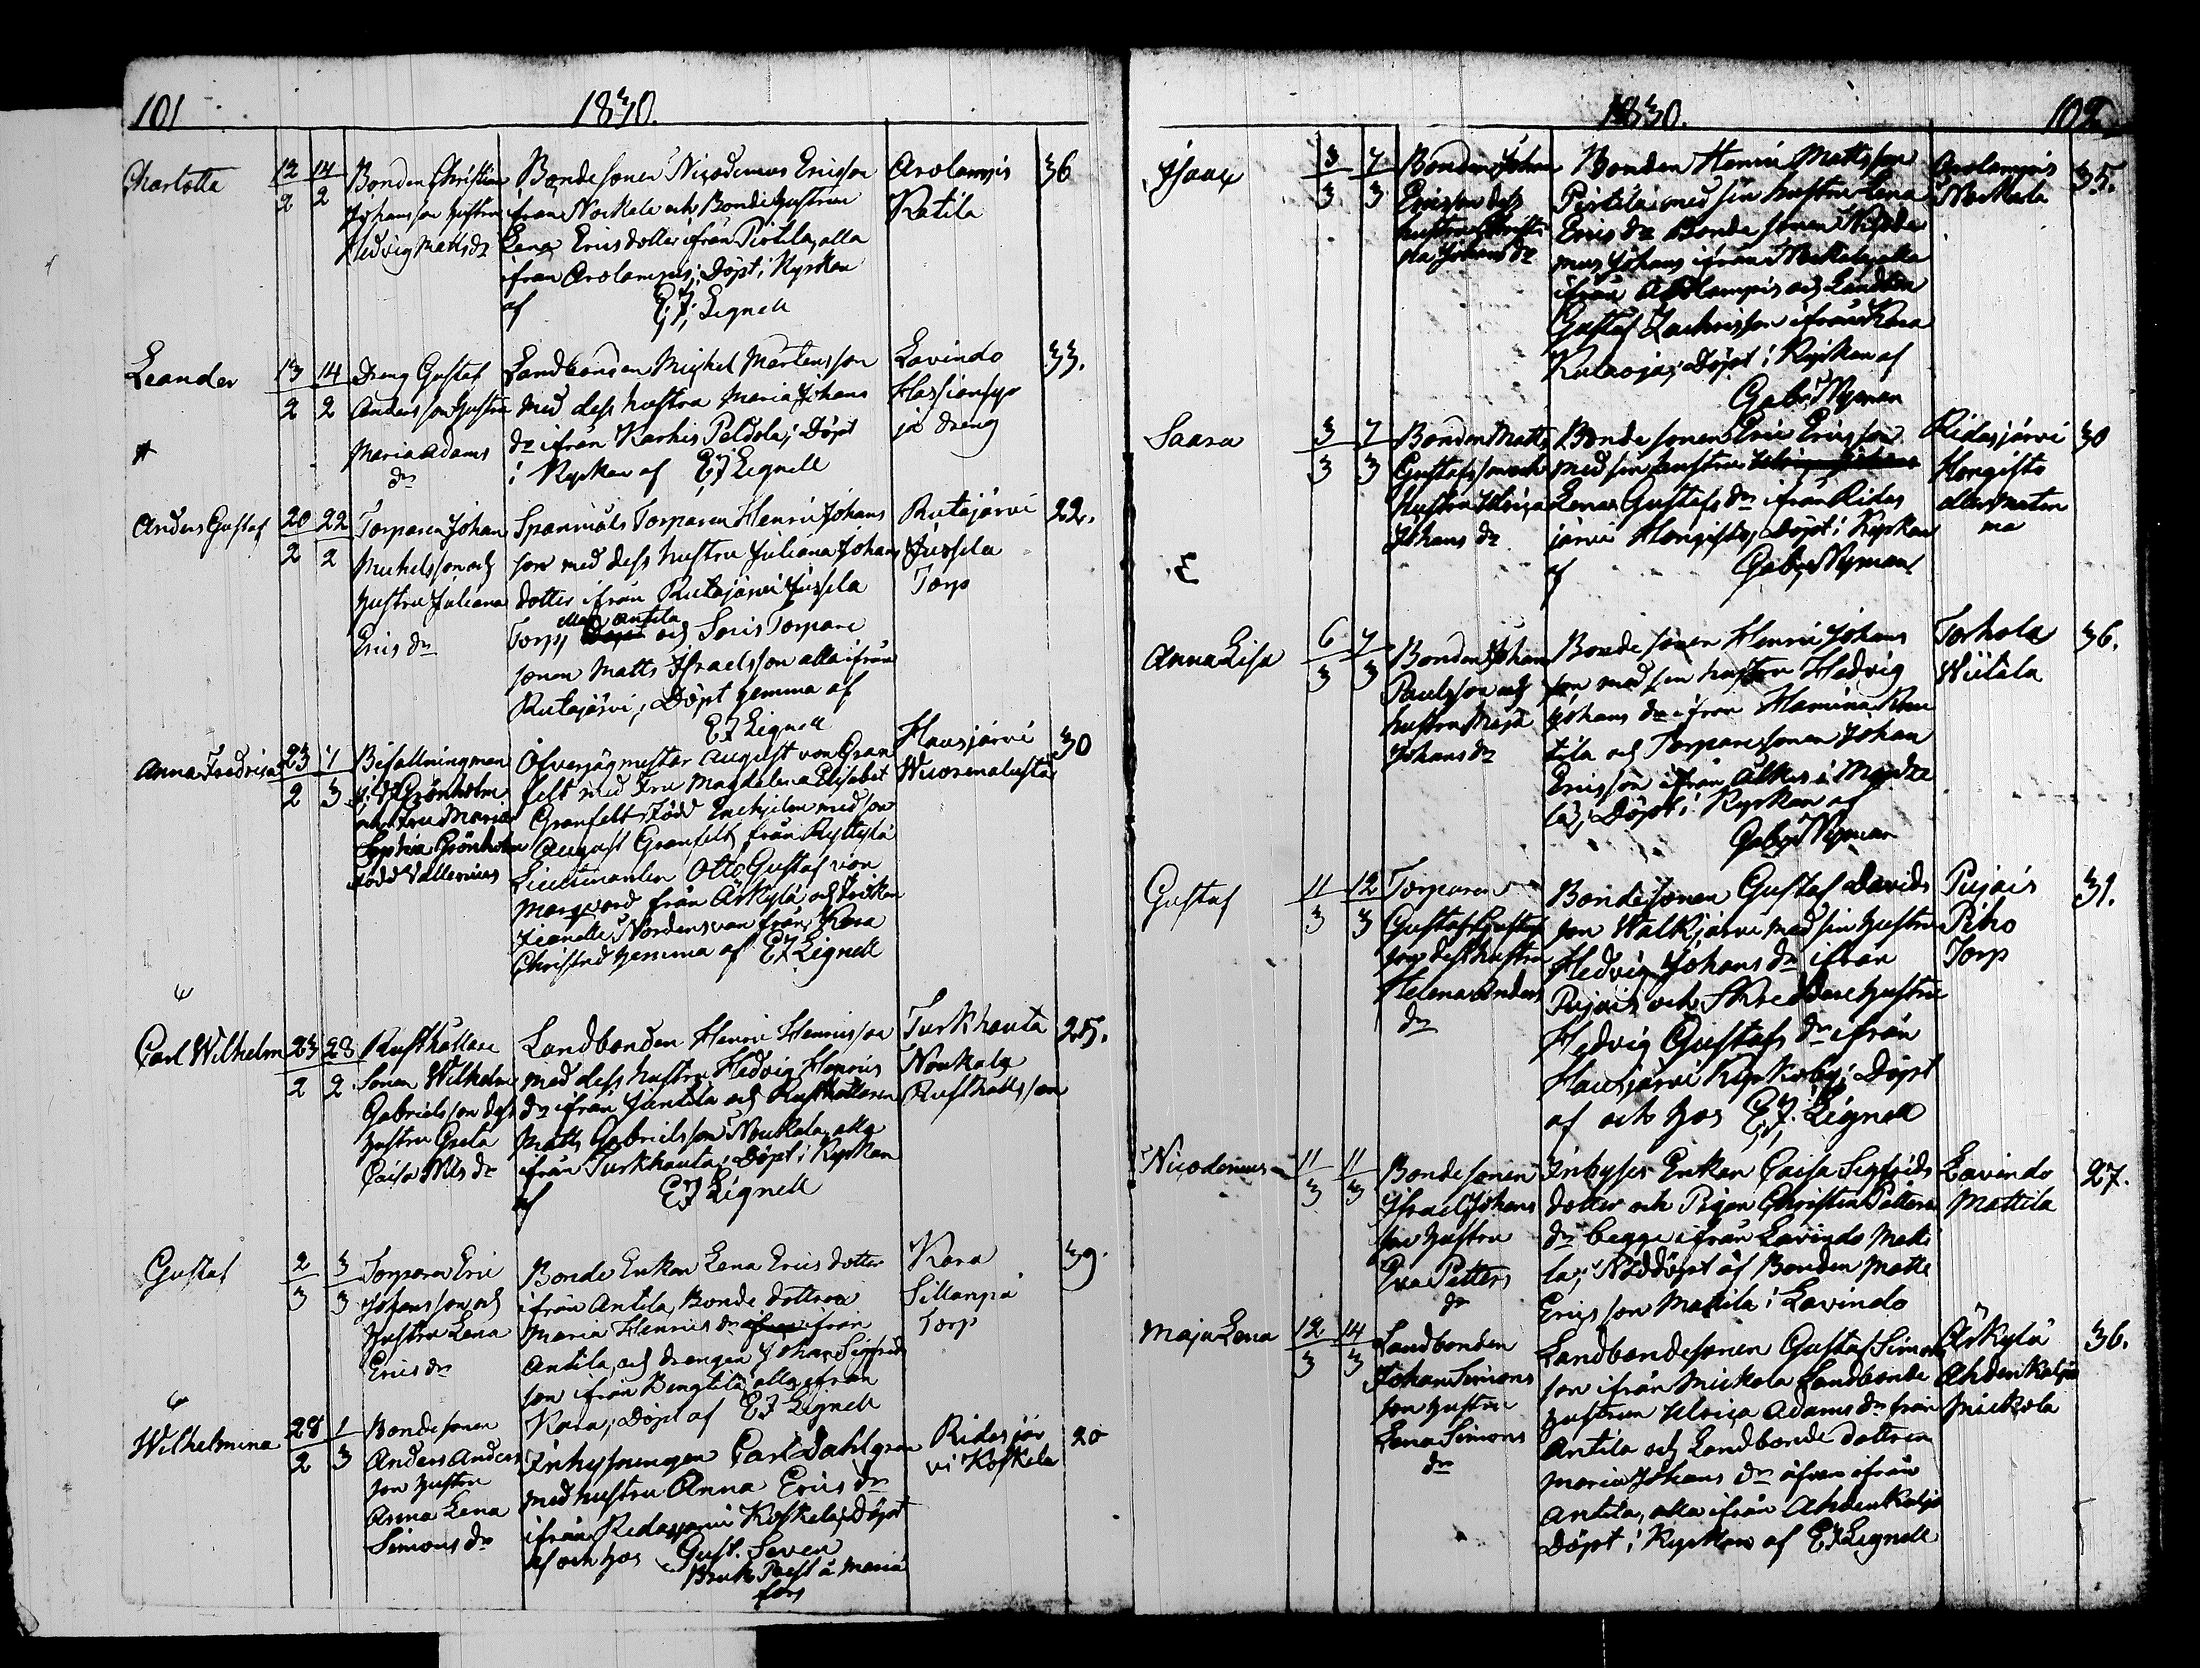 101
1830.
Charlotta
12/2
14/2
Bonden Christian
Johansson hustru
Hedvig Matts dr
Bondesonen Nicodemus Ericsson
från Nockala och Bondehustrun
Lena Ericsdotter ifrån Pirtila, alla
ifrån Arolampis; Döpt i Kyrkan
af E; J; Lignell
Arolampis
Katila
36
Leander
13/2
14/2
Dreng Gustaf
Andersson hustru
Maria Adams
dr
Landbonden Michel Mårtensson
med dess hustru Maria Johans
dr ifrån Karhis Peldola; Döpt
i Kyrkan af EJ Lignell
Lavindo
dreng
33.
Anders Gustaf
20/2
22/2
Torparen Johan
Michelsson och
hustru Juliana
Erics dr
Spanmåls Torparen Henric Johans
son med dess hustru Juliana Johans
dotter ifrån Rutajärvi Jussila
Torp, eller Antila och Torpare
sonen Matts Israelsson alla ifrån
Rutajärvi; Döpt hemma af
EJ Lignell
Rutajärvi
Jussila
Torp
22.
Anna Fredrica
23/2
1/3
Befallningsman
Grönholm
och Fru Maria
Sophia Grönholm
född Vallenius
Öfverjägmästar August von Gran
felt med Fru Magdalena Elisabet
Granfelt född Enehjelm med son
August Granfelt, från Ryttylä
Lieutnanten Otto Gustaf von
Marqvard från Äskylä och Fröken
Jeanette Nordensvan från Kara
Christnad hemma af EJ Lignell
Hausjärvi
30
Carl Wilhelm
23/2
28/2
Rusthållare
Sonen Wilhelm
Gabrielsson dess
hustru Greta
Caisa Nils dr
Landbonden Henric Henricsson
med dess hustru Hedvig Henrics
dr ifrån Juntila och Rusthållaren
Matts Gabrielsson Noukala, alla
ifrån Turkhauta; Döpt i Kyrkan
af EJ Lignell
Turkhauta
Noukala
Rusthålls son
25.
Gustaf
2/3
3/3
Torparen Eric
Johansson och
hustru Lena
Erics dr
Bonde Enkan Lena Ericsdotter
ifrån Antila, Bonde dottren
Maria Henrics dr ifrån
Antila, och drengen Johan Sigfrids
son ifrån Bengtilä, alla ifrån
Kara; Döpt af EJ Lignell
Kara
Sillanpä
Torp
39.
Wilhelmina
28/2
1/3
Bondesonen
Anders Anders
son hustru
Anna Lena
Simons dr
Inhysningen Carl Dahlgren
med hustru Anna Erics dr
ifrån Ridasjärvi Koskela; Döpt
af och hos Gust. Seven
Bruks Prest å Maria
fors
Ridasjär
vi Koskela
20
1830.
102
Isaac
3/3
7/3
Bonden Johan
Ericsson dess
hustru Christi
na Johans dr
Bonden Henric Mattsson
Pirtilä med sin hustru Lena
Erics dr Bonde sonen Nicode
mus Johans ifrån Nockala, alla
ifrån Arolampis och Landbon
Gustaf Zachrisson ifrån Kara
Kulaoja; Döpt i Kyrkan af
Gabr. Nyman
Arolampis
Nockala
35.
Saara
3/3
7/3
Bonden Matts
Gustafsson och
hustru Ulrica
Johans dr
Bonde sonen Eric Ericsson
med sin hustru
Lena Gustafs dr ifrån Ridas
järvi Hongisto; Döpt i Kyrkan
af Gabr. Nyman
Ridasjärvi
Hongisto
30
E
Anna Lisa
6/3
7/3
Bonden Johan
Paulsson och
hustru Maja
Johans dr
Bonde sonen Henric Johans
son med sin hustru Hedvig
Johans dr ifrån
och Torparesonen Johan
Ericsson ifrån
Döpt i Kyrkan af
Gabr. Nyman
Torhola
Wiitala
36.
Gustaf
11/3
12/3
Torparen
Gustaf Gustaf
son dess hustru
Helena Anders
dr
Bondesonen Gustaf Davids
son Walkjärvi med sin hustru
Hedvig Johans dr ifrån
Pujais och Skreddarehustru
Hedvig Gustafs dr ifrån
Hausjärvi Kyrkoby; Döpt
af och hos EJ. Lignell
Pujais
Piho
Torp
31.
Nicodemus
11/3
11/3
Bondesonen
Israel Johans
son hustru
Eva Petters
dr
Inhyses Enkan Caisa Sigfrids
dotter och Pigan Christina Petters
dr begge ifrån Lavindo Matti
la; Nöddöpt af Bonden Matts
Ericsson Mattila i Lavindo
Lavindo
Mattila
27.
Maja Lena
12/3
14/3
Landbonden
Johan Simons
son hustru
Lena Simons
dr
Landbondesonen Gustaf Simons
son ifrån Mickola Landbonde
hustrun Ulrica Adams dr från
Antila och Landbonde dottren
Maria Johans dr äfven ifrån
Antila, alla ifrån Ahdenkaljo
Döpt i Kyrkan af EJ Lignell
Äskylä
Ahdenkaljo
Mickola
36.